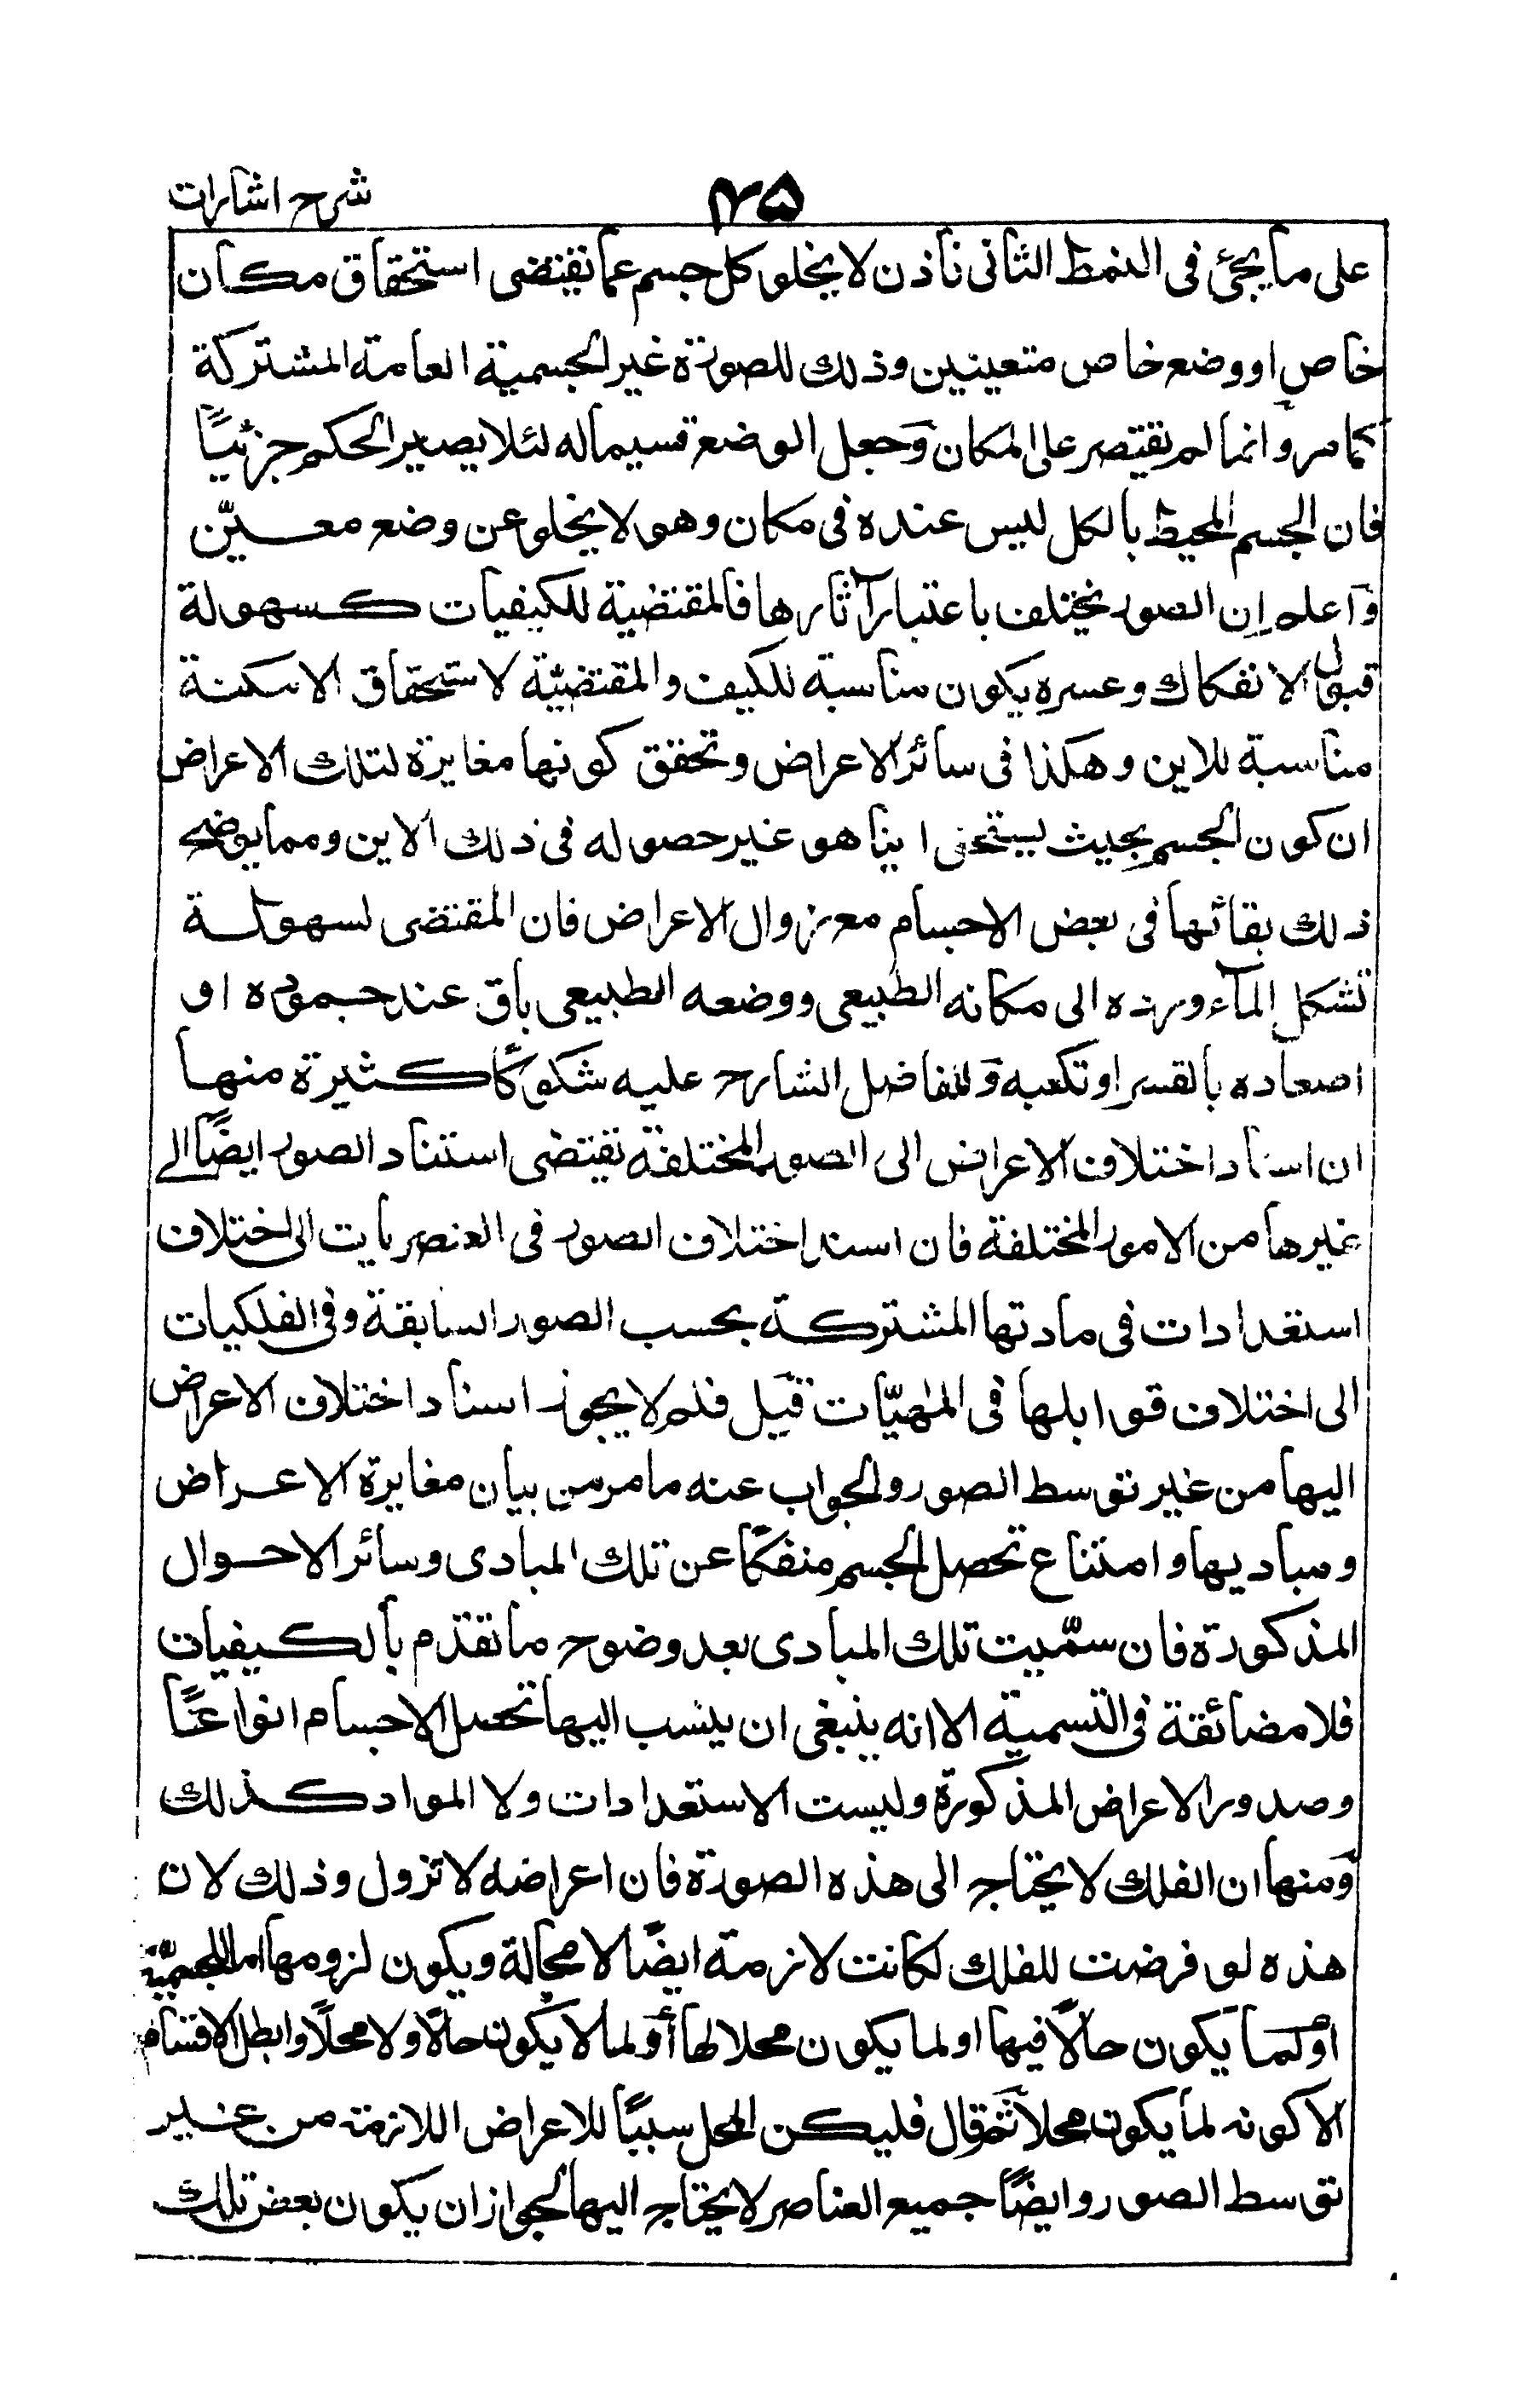 شرح اشارات
۴۵
على ما يجئ فى النمط الثانى فاذن لا يخلو كل جسم عما يقتضى استحقاق مكان
خاص او وضع خاص متعينين وذلك للصورة غير الجسمية العامة المشتركة
كما مر وانما لم يقتصر على المكان وجعل الوضع قسيما له لئلا يصير الحكم جزئيًا
فان الجسم المحيط بالكل ليس عنده فى مكان وهو لا يخلو عن وضع معيّن
وَاعلم ان الصور يختلف باعتبار آثارها فالمقتضية للكيفيات كسهولة
قبول الانفكاك وعسره يكون مناسبة للكيف والمقتضيّة لاستحقاق الامكنة
مناسبة للاين وهكذا فى سائر الاعراض وتحقق كونها مغايرة لتلك الاعراض
ان كون الجسم بحيث يستحق اينا هو غير حصوله فى ذلك الاين ومما يوضح
ذلك بقائها فى بعض الاجسام مع زوال الاعراض فان المقتضى لسهولة
تشكل المآء ورده الى مكانه الطبيعى ووضعه الطبيعى باق عند جموده او
اصعاده بالقسر او تكعبه وَللفاضل الشارح عليه شكوكًا كثيرة منها
ان اسناد اختلاف الاعراض الى الصور المختلفة يقتضى استناد الصور ايضًا الے
غيرها من الامور المختلفة فان اسند اختلاف الصور فى العنصريات الى اختلاف
استعدادات فى مادتها المشتركة بحسب الصور السابقة وفى الفلكيات
الى اختلاف قوابلها فى المٰهيّات قيل فلم لا يجوز اسناد اختلاف الاعراض
اليها من غير توسط الصور والجواب عنه ما مر من بيان مغايرة الاعراض
ومباديها وامتناع تحصل الجسم منفكًا عن تلك المبادى وسائر الاحوال
المذكورة فان سمّيت تلك المبادى بعد وضوح ما تقدم بالكيفيات
فلا مضائقة فى التسمية الا انه ينبغى ان ينسب اليها تحصل الاجسام انواعًا
وصدور الاعراض المذكورة وليست الاستعدادات ولا المواد كذلك
وَمنها ان الفلك لا يحتاج الى هذه الصورة فان اعراضه لا تزول وذلك لان
هذه لو فرضت للفلك لكانت لازمة ايضًا لا محالة ويكون لزومها اما للجسميّة
اوْ لما يكون حالًا فيها او لما يكون محلا لها أوْ لما لا يكون حالًا ولا محلًا وابطل الاقسام
الا كونه لما يكون محلا ثمّ قال فليكن المحل سببًا للاعراض اللازمة من غير
توسط الصور وايضًا جميع العناصر لا يحتاج اليها لجواز ان يكون بعض تلك